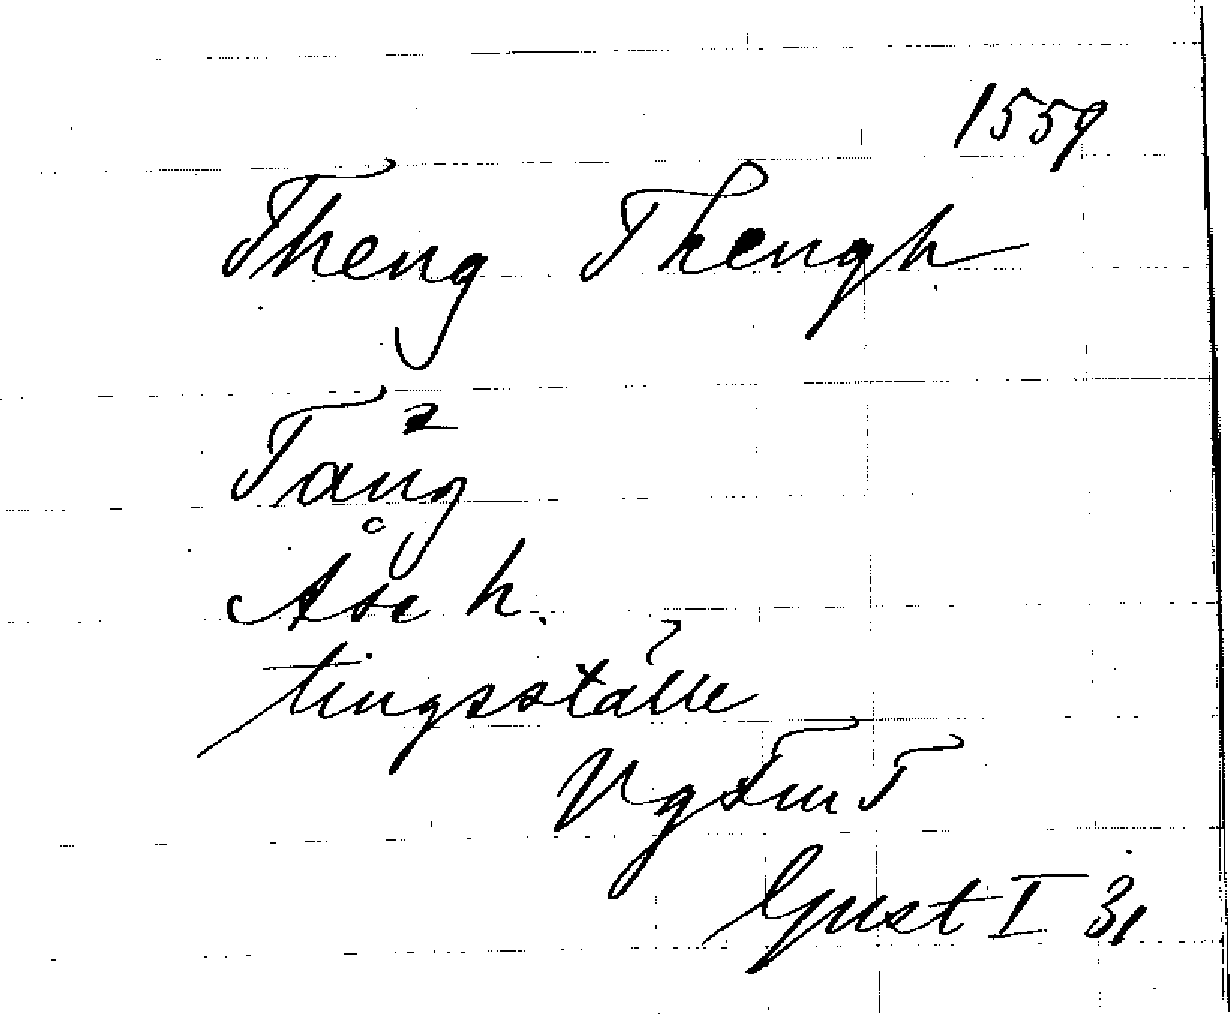 1559
Theng Thengh
Täng
Åse h.
tingsställe
Vg Tin T
Gust I 31